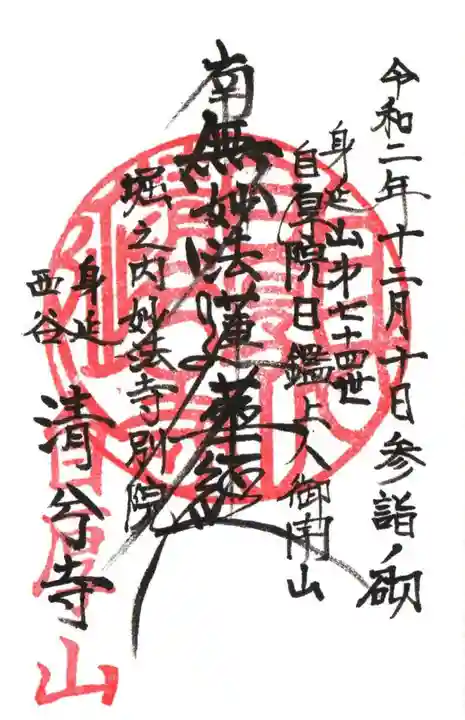 令和二年十二月十日参詣ノ砌
身延山第七十四世
自厚院日鑑上人御開山
南無妙法蓮華経
堀之内妙法寺別院
身延
西谷
清兮寺
自厚山